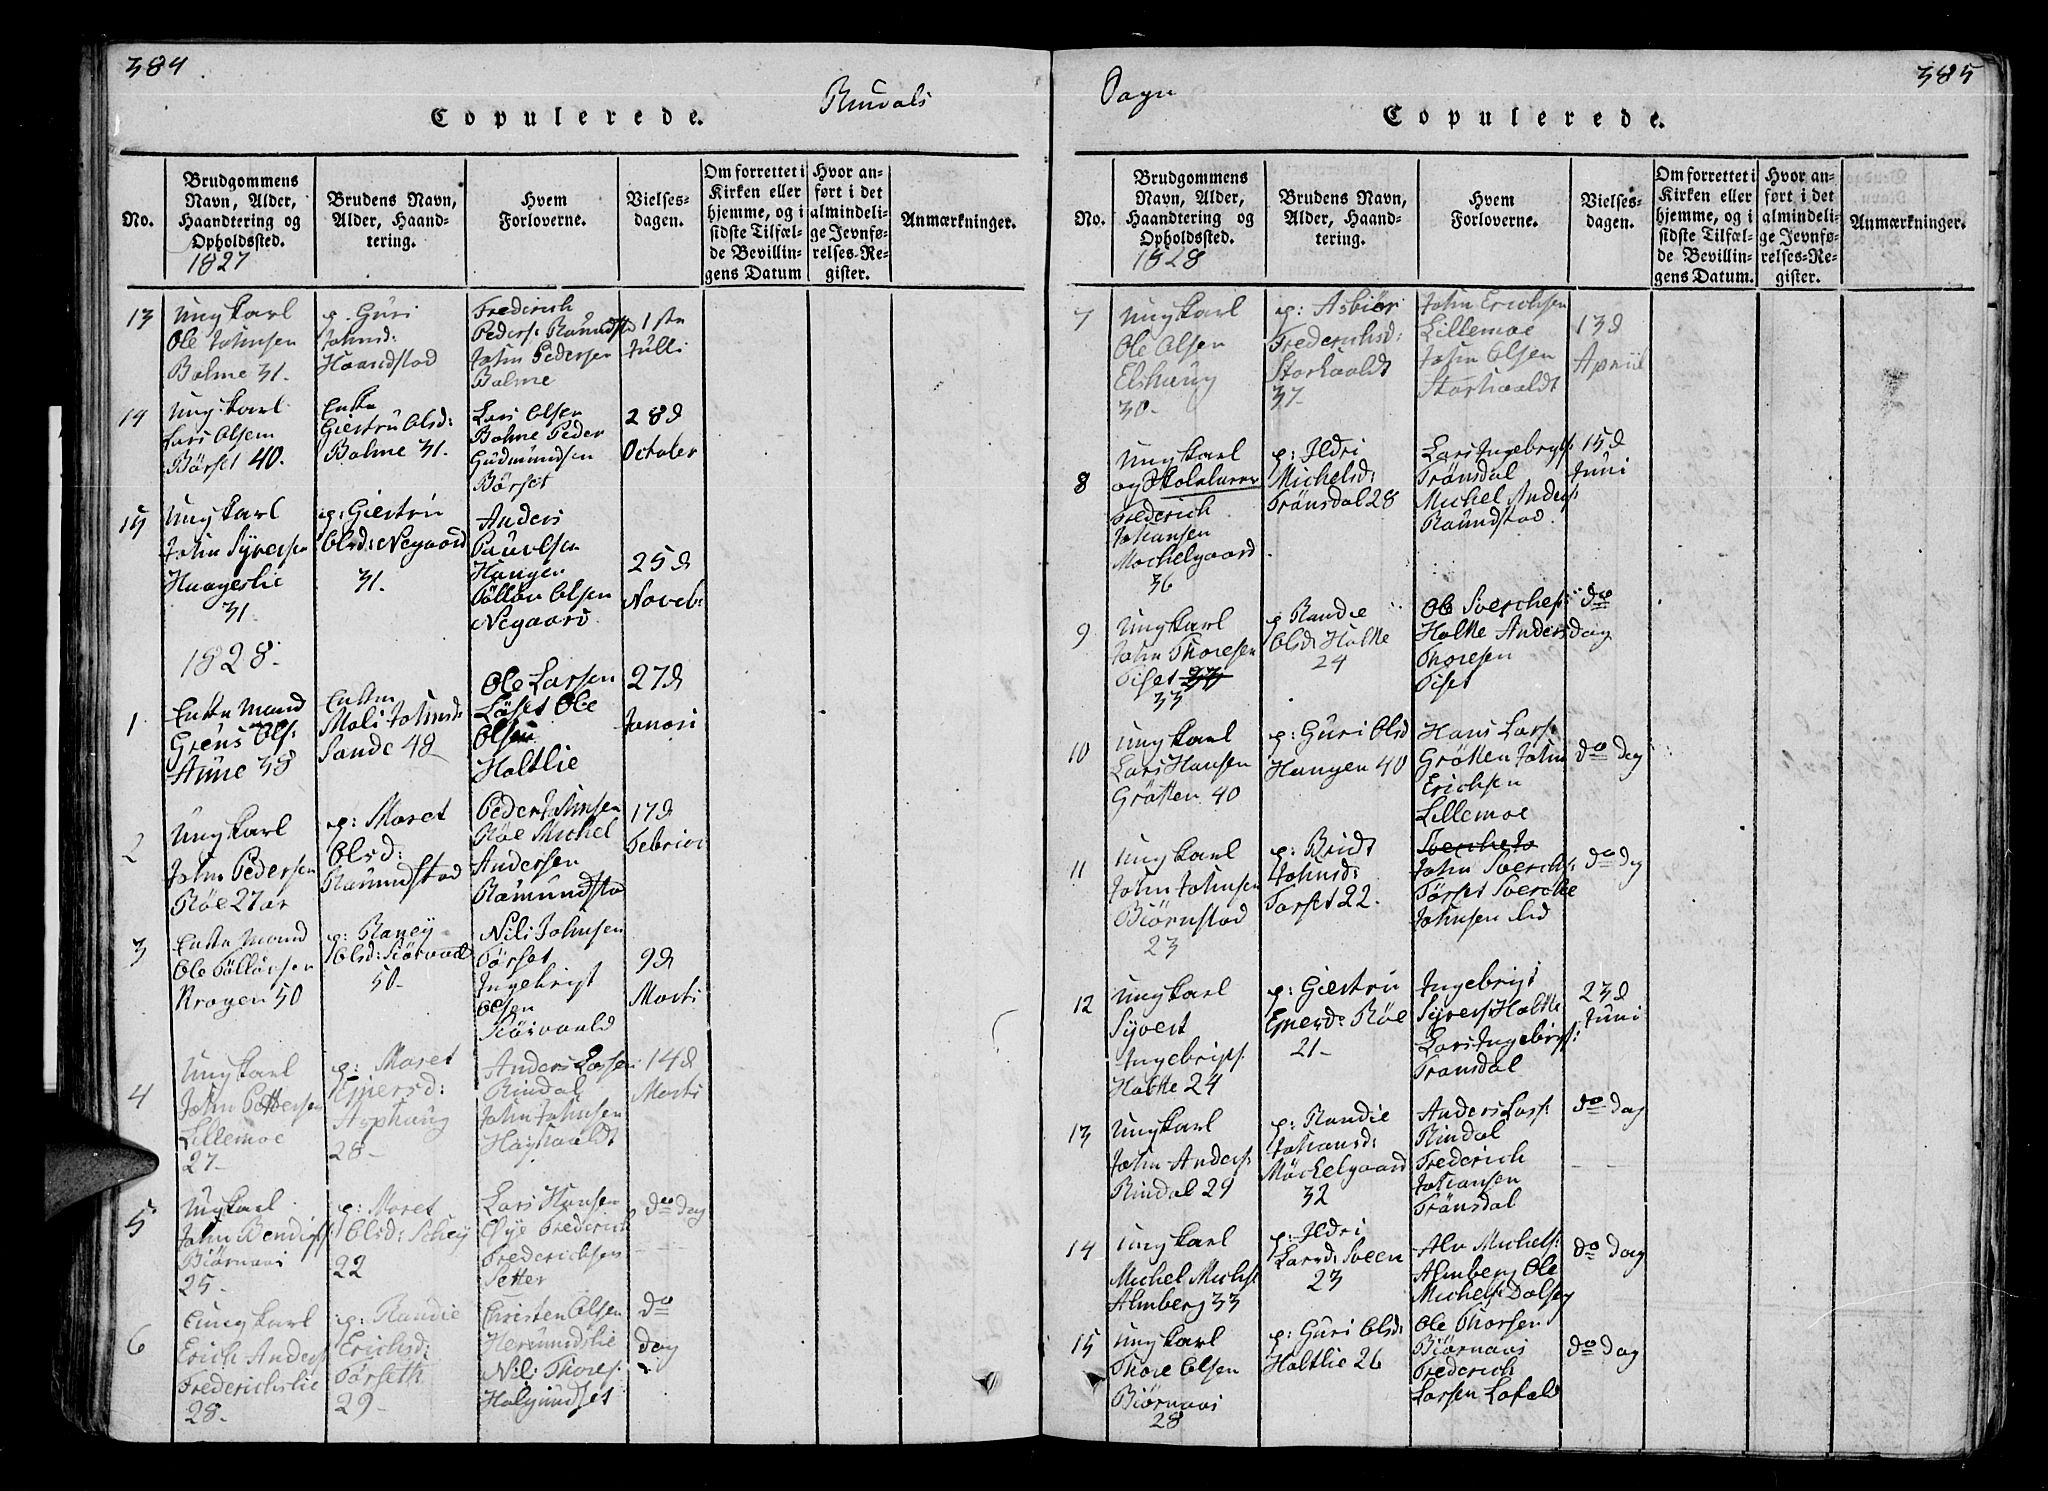 384
Rindals
Copulerede.
No.
Brudgommens Navn, Alder, Haandtering og Opholdssted.
1827
Brudens Navn, Alder, Haandtering.
Hvem Forloverne.
Vielsesdagen.
Om forrettet i Kirken eller hjemme, og i sidste Tilfælde Bevillingens Datum
Hvor anført i det almindelige Jevnførelses-Register.
Anmærkninger.
13
Ungkarl
Ole Johnsen
Bolme 31.
p. Guri
Johnsd:
Haandstad
Frederich
Peders: Raundsta
John Pedersen
Bolme
1ste
Julli
14
Ungkarl
Lars Olsen
Börset 40.
Enke
Giestru Olsd:
Bolme 31.
Lars Olsen
Bolme Peder
Gudmundsen
Börset
28d
October
15
Ungkarl
John Syversen
Haugeslie
31.
p: Giestru
Olsd: Negaard
31.
Anders
Paavelsen
Haugen
Töllöv Olsen
Negaard
25d
Noveb:
1828.
1
Enke Mand
Grens Ols:
Aune 38
Enken
Mali Johnsd:
Sande 48
Ole Larsen
Löset Ole
Olsen
Holtlie
27d
Janari
2
Ungkarl
John Pedersen
Röe 27 aar
p: Maret
Olsd:
Raundstad
Peder Johnsen
Röe Michel
Andersen
Raundstad
17d
Febriari
3
Enke Mand
Ole Töllövsen
Krogen 50
p: Raney
Olsd: Kiörvald
50
Nils Johnsen
Törset
Ingebrigt
Olsen
Kiörvaald
9d
Marti
4
Ungkarl
John Pettersen
Lillemoe
27
p: Maret
Ejnersd:
Asphaug
28
Anders Larsen
Rindal
John Johnsen
Høghaaldt
14d
Marti
5
Ungkarl
John Bendigs
Biörnaas
25
p: Maret
Olsd: Schey
22
Lars Hansen
Øye Frederich
Frederichsen
Setter
do dag
6
Ungkarl
Erich Anders
Frederichslie
28
p: Randie
Erichsd:
Törseth
29
Christen Olsen
Hermundslie
Nils Thores:
Halgundset
do
dag
385
Sogn
Copulerede.
No.
Brudgommens Navn, Alder, Haandtering og Opholdssted.
1828
Brudens Navn, Alder, Haandtering.
Hvem Forloverne.
Vielsesdagen.
Om forrettet i Kirken eller hjemme, og i sidste Tilfælde Bevillingens Datum.
Hvor anført i det almindelige Jevnførelses-Register.
Anmærkninger.
7
Ungkarl
Ole Olsen
Elshaug
30
p: Asbiör
Frederichsd:
Storhaaldt
37
John Erichsen
Lillemoe
John Olsen
Storhaaldt
13d
Apriil
8
Ungkarl
og Skolelærer
Frederich
Johansen
Mochelgaard
36
p: Ildri
Michelsd:
Trönsdal 28
Lars Ingebrigts:
Trönsdal
Michel Anders:
Raundstad.
15d
Juni
9
Ungkarl
John Thoresen
Tiset 33
33
p Randie
Olsd Holte
24
Ole Sverches:
Holte Anders
Thoresen
Tiset
do
dag
10
Ungkarl
Lars Hansen
Grötten 40
p: Guri Olsd
Haugen 40
Hans Lars:
Grötten John
Erichsen
Lillemoe
do dag
11
Ungkarl
John Johnsen
Biörnstad
23
p: Bridt
Johnsd:
Torset 22.
John Sverchs:
Törset Sverche
Johnsen ibid
do dag
12
Ungkarl
Syvert
Ingebrigts:
Holte 24
p: Giestru
Ejnersd: Röe
21
Ingebrigt
Syvers: Holte
Lars Ingebrigts:
Tronsdal
23d
Juni
13
Ungkarl
John Anders:
Rindal 29
p: Randie
Johansd:
Möchelgaard
32
Anders Lars:
Rindal
Frederich
Johansen
Tronsdal
do dag
14
Ungkarl
Michel Michs:
Almberg 33
p: Ildri
Larsd: Sveen
23
Alv Michels:
Almberg Ole
Michels: Dalseg
do dag
15
Ungkarl
Thore Olsen
Biörnaas
28
p: Guri Olsd:
Holtlie 26
Ole Thorsen
Biörnaas
Frederich
Larsen Lofald
do dag